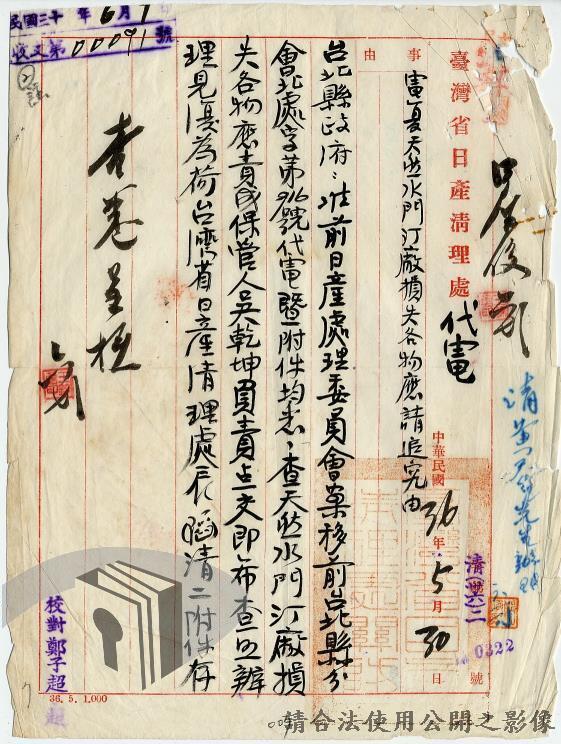 臺灣省日產清理處
代電
事由
電夏天然水門汀廠損失各物應請追究由
中華民國36年5月30日
號
0322
台北縣政府：准前日產處理委員會案移前台北縣分
會北處字第916號代電暨附件均悉：查天然水門汀廠損
失各物應責成保管人吳乾坤負責点交即希查照辦
理見復為荷台灣省日產清理處辰 清二附件存
查卷呈核
民國三十 年6月1
收文第00091號
校對鄭子超
36.5.1,000
請合法使用公開之影像